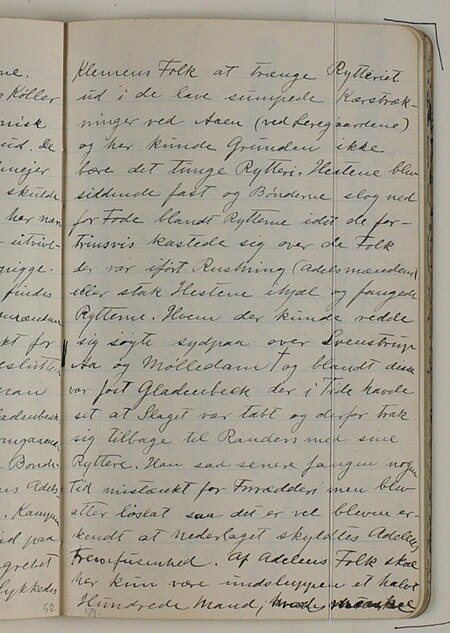 ne.
Köller
nisk
ud. De
mejer
skulde
her nær
utrivl-
rigge.
findes
mændene
kt for
beslutter
man
ladenbeck
omgaaende
Bonde-
ns Adels
. Kampen
id paa
grebet
lykkedes
58.
Klemens Folk at trænge Rytteriet
ud i de lave sumpede Kærstræk-
ninger ved Aaen (ved Leregaardene)
og her kunde Grunden ikke
bære det tunge Rytteri. Hestene blev
siddende fast og Bønderne slog ned
for Fode blandt Rytterne idet de for-
trinsvis kastede sig over de Folk
der var iført Rustning (adelsmændene)
eller stak Hestene ihjel og fangede
Rytterne. Hvem der kunde redde
sig søgte sydpaa over Svenstrup
Aa og Mølledam † og blandt disse
var fort Gladenbeck der i Tide havde
set at Slaget var tabt og derfor trak
sig tilbage til Randers med sine
Ryttere. Han sad senere fangen nogen
Tid mistænkt for Forræderi men blev
atter løsladt saa det er vel bleven er-
kendt at Nederlaget skyldtes Adelens
Fremfusenhed. Af Adelens Folk skal
her kun være undsluppen et halvt
Hundrede Mand,
59.